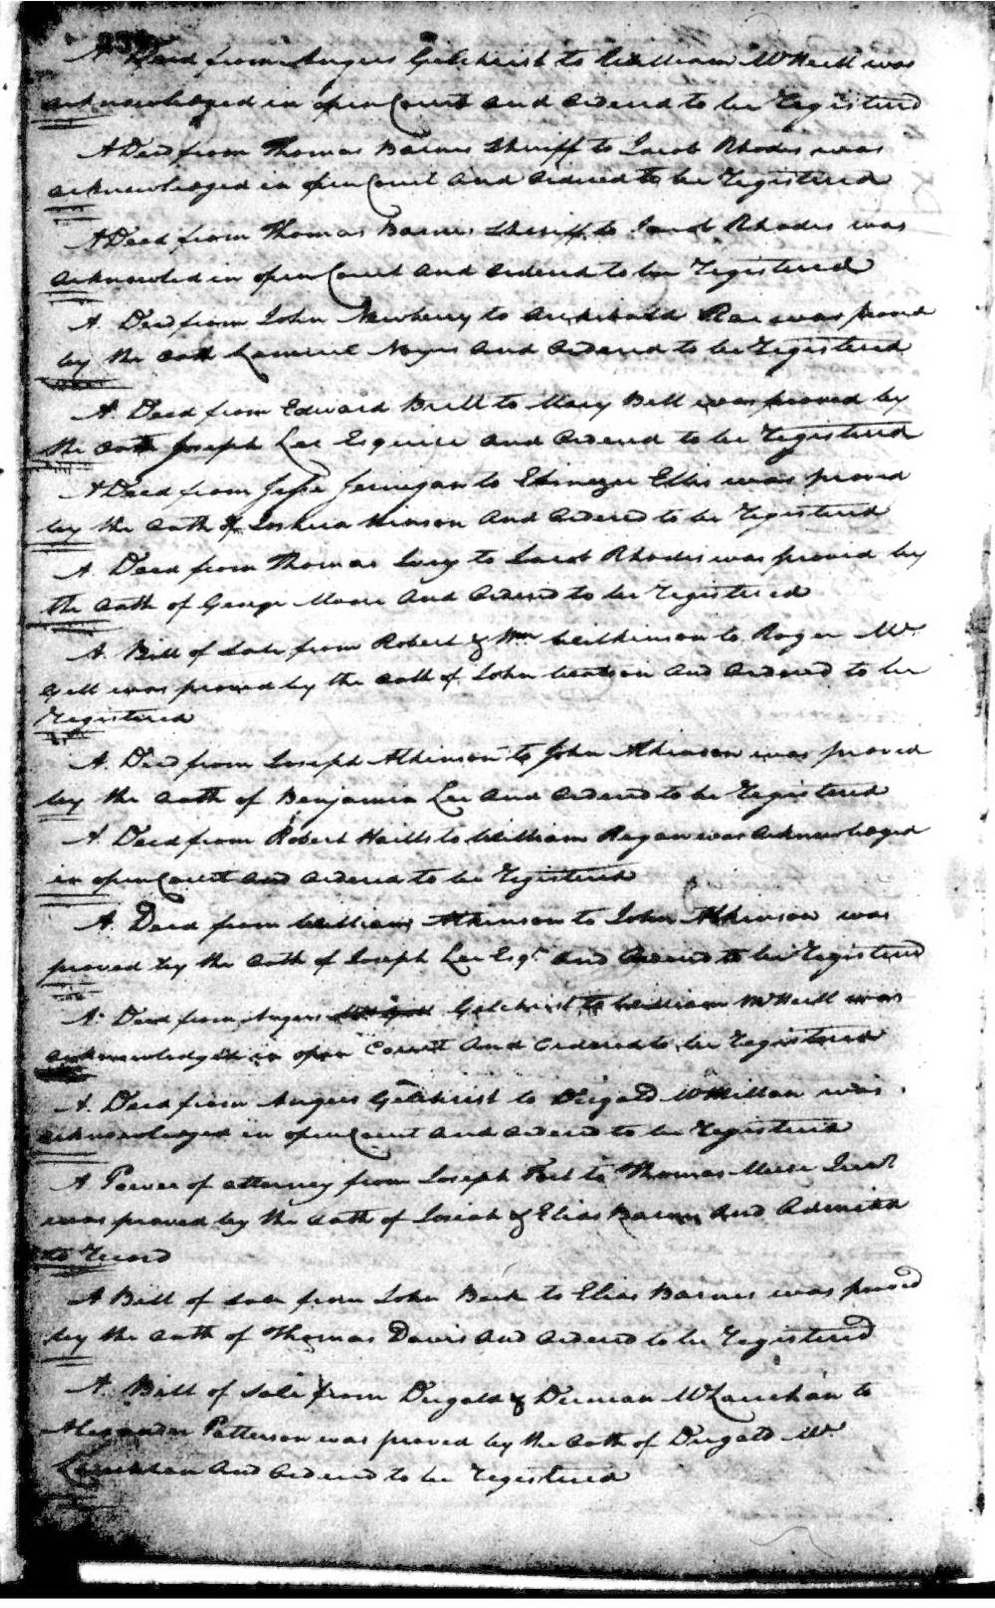 A Deed from Angus Gilchrist to William McNeill was
acknowledged in open Court and Ordered to be Registered
A Deed from Thomas Barnes Sheriff to Jacob Rhodes was
acknowledged in open Court and Ordered to be Registered
A Deed from Thomas Barnes Sheriff to Jacob Rhodes was
acknowled in open Court and Ordered to be Registered
A Deed from John Newberry to Archibald Rae was proved
by the Oath Lemuel Noyes and Ordered to be Registered
A Deed from Edward Bell to Mary Bell was proved by
the Oath Joseph Lee Esquire and Ordered to be Registered
A Deed from Jesse Jernigan to Ebenezer Ellis was proved
by the Oath of Joshua Hinson and Ordered to be Registered
A Deed from Thomas Ivey to Jacob Rhodes was proved by
the Oath of George Moore and Ordered to be Registered
A Bill of Sale from Robert & Wm Wilkinson to Roger Mc
Gill was proved by the Oath of John Watson and Ordered to be
Registered
A Deed from Joseph Atkinson to John Atkinson was proved
by the Oath of Benjamin Lee and Ordered to be Registered
A Deed from Robert Hails to William Ragan was acknowledged
in open Court and Ordered to be Registered
A Deed from William Atkinson to John Atkinson was
proved by the Oath of Joseph Lee Esqr and Ordered to be Registered
A Deed from Angus Gilchrist to William McNeill was
acknowledged in open Court and Ordered to be Registered
A Deed from Angus Gilchrist to Dugald McMillan was
acknowledged in open Court and Ordered to be Registered
A Power of attorney from Joseph Fort to Thomas
was proved by the Oath of Josiah & Elias Barnes and Admitted
to Record
A Bill of Sale from John Beck to Elias Barnes was proved
by the Oath of Thomas Davis and Ordered to be Registered
A Bill of Sale from Dugald & Duncan McLauchlan to
Alexander Patterson was proved by the Oath of Dugald Mc
Lauchlan and Ordered to be Registered